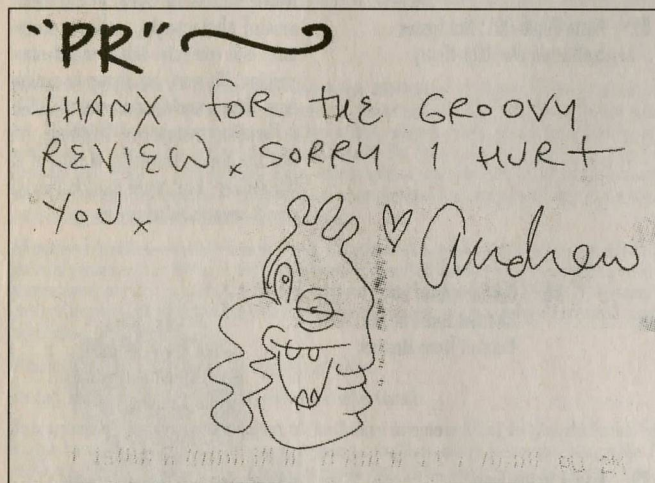 "PR"
THANX FOR THE GROOVY
REVIEW x SORRY I HURT
YOU x
Andrew